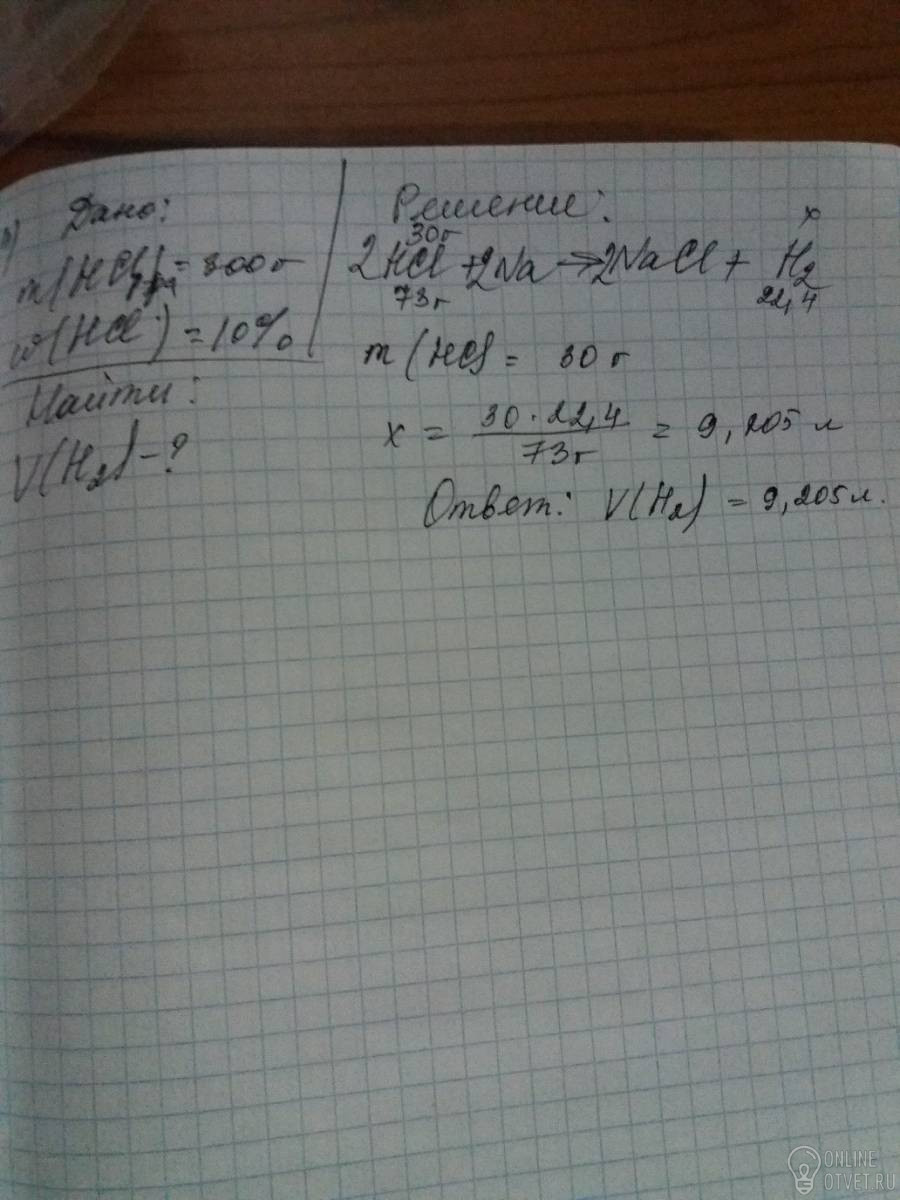 Дано:
m(HCl)р-ра = 300 г
w(HCl) = 10%
Найти:
V(H2) - ?
Решение:
30г x
2HCl + 2Na → 2NaCl + H2
73г 22,4
m(HCl) = 30 г
x = 30 · 22,4 / 73г = 9,205 л
Ответ: V(H2) = 9,205 л.
ONLINE
OTVET.RU